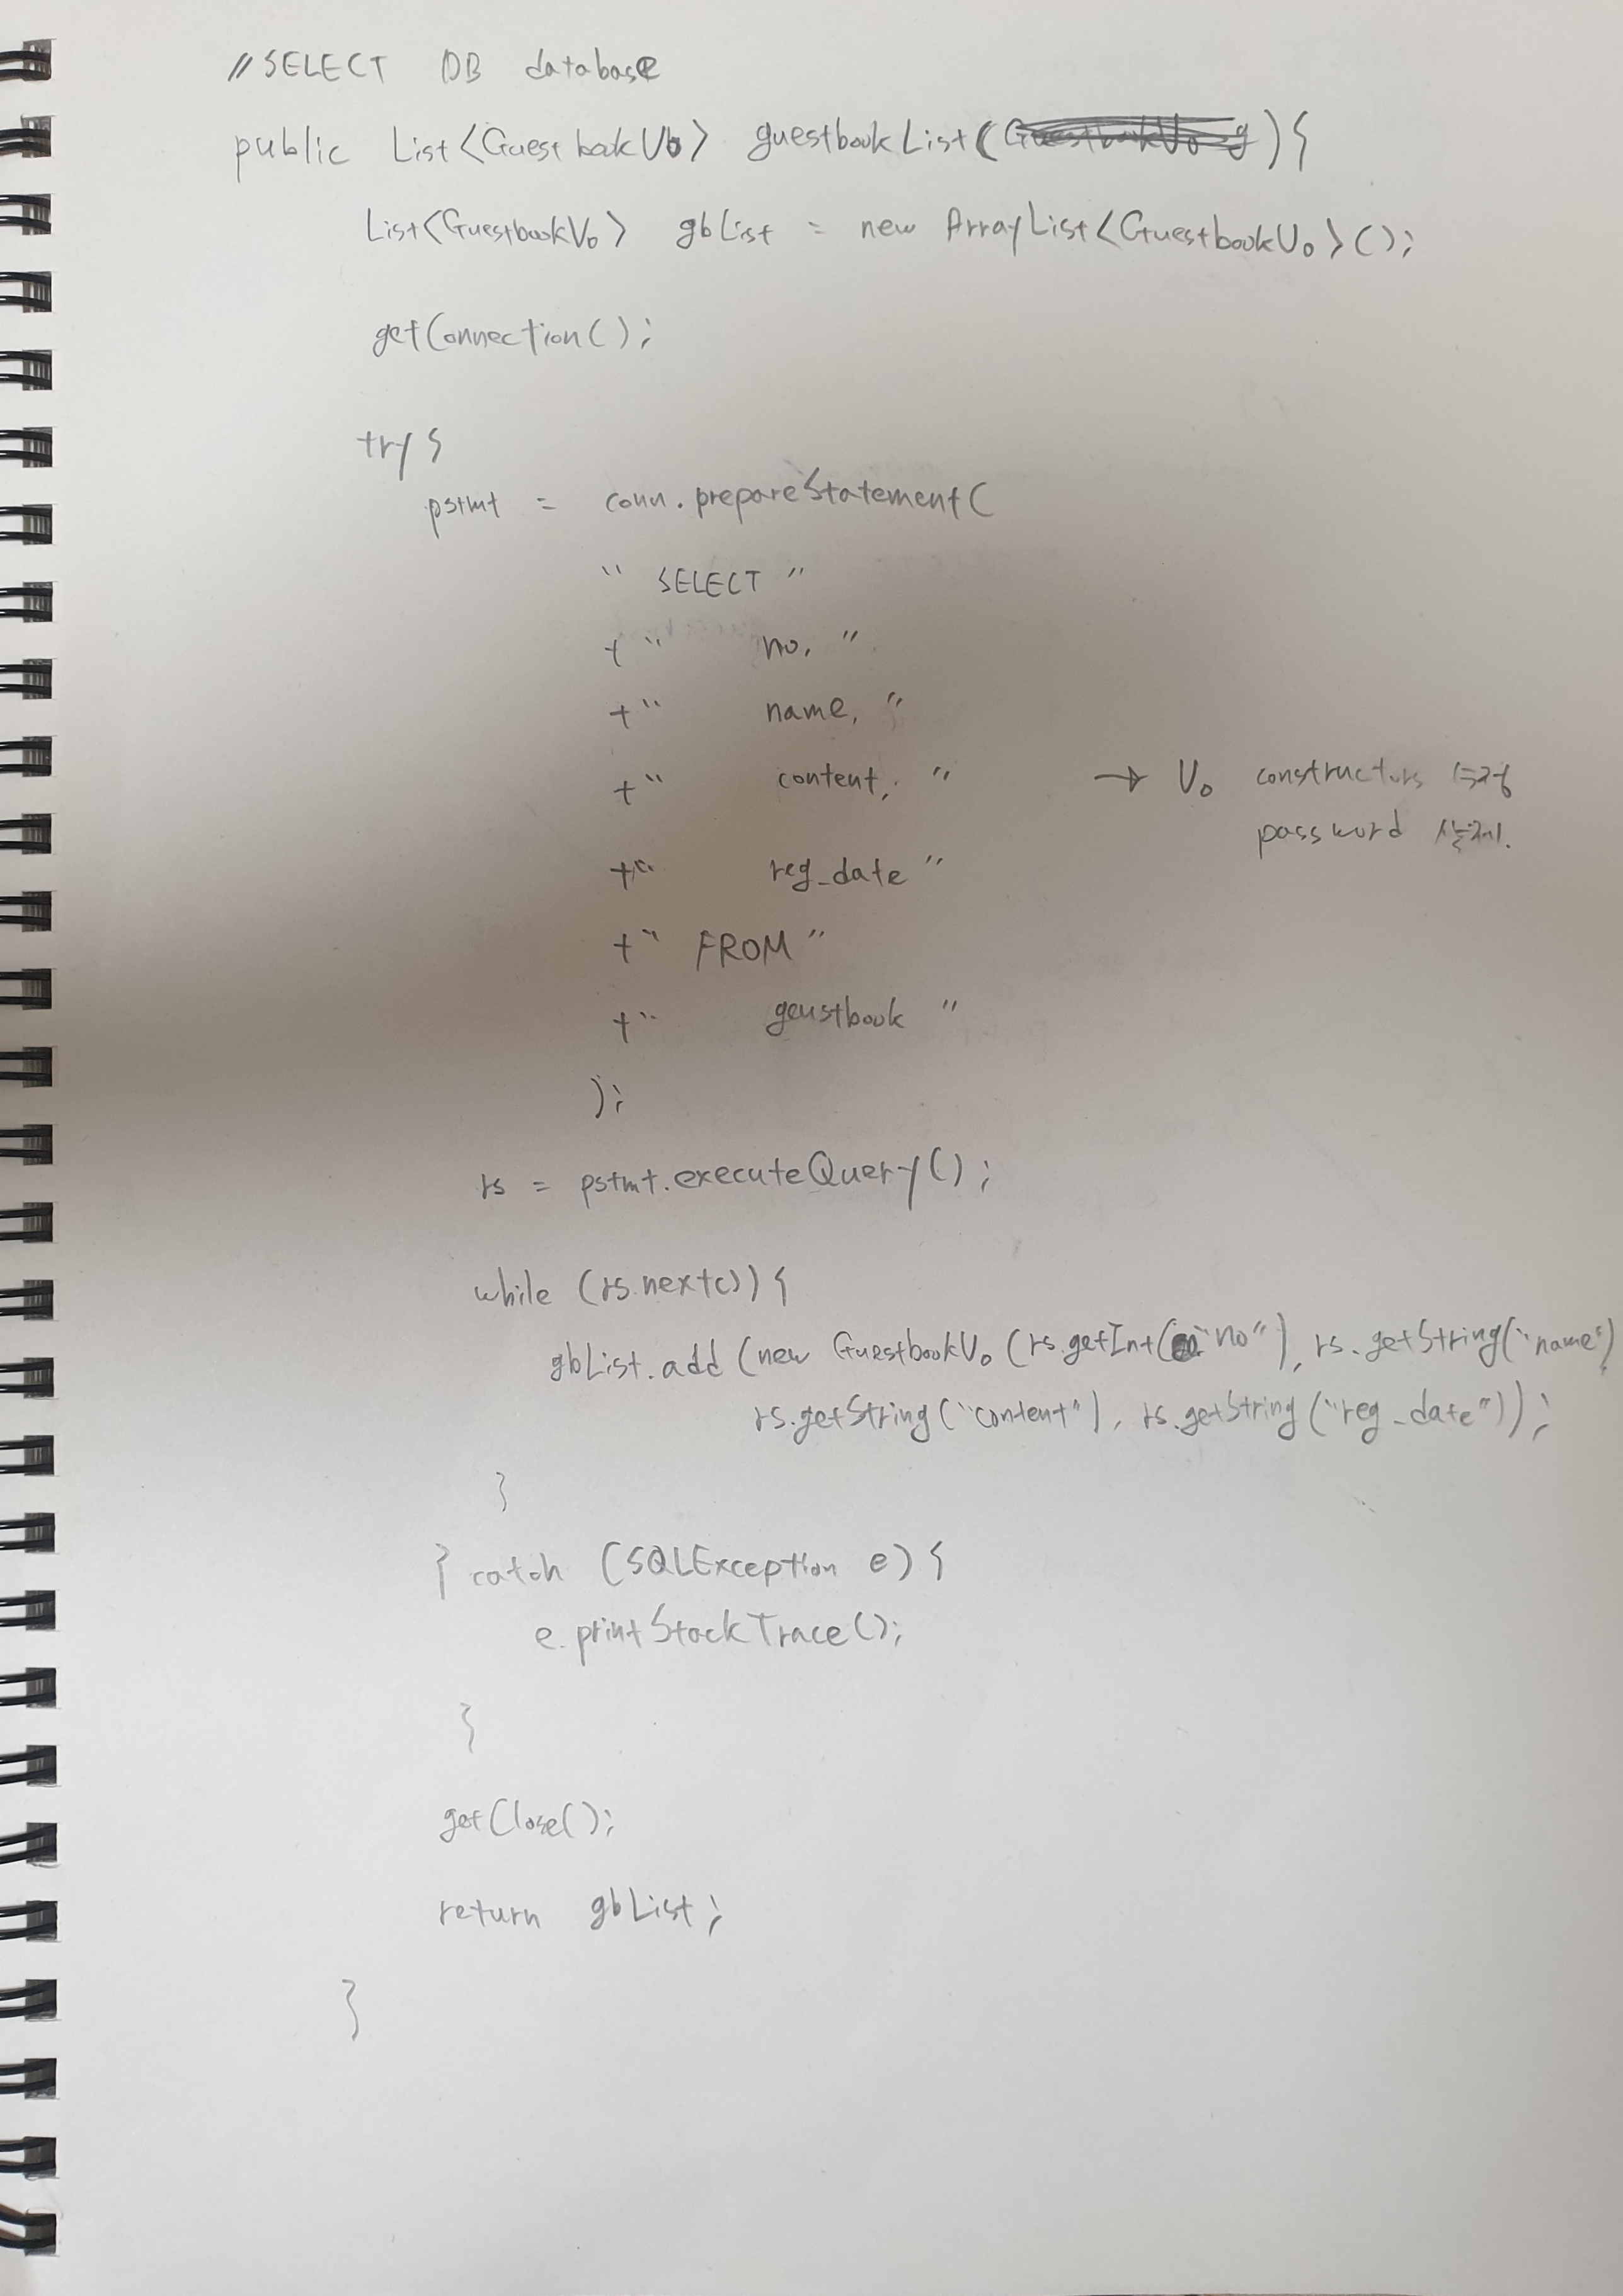 //SELECT DB database
public List<GuestbookVo> guestbookList(GuestbookVo g){
List<GuestbookVo> gbList = new ArrayList<GuestbookVo>();
getConnection();
try{
pstmt = conn.prepareStatement(
" SELECT "
+ " no, "
+ " name, "
+ " content, " → Vo constructors
password 삭제.
+ " reg_date "
+ " FROM "
+ " geustbook "
);
rs = pstmt.executeQuery();
while (rs.next()){
gbList.add(new GuestbookVo(rs.getInt("no"), rs.getString("name")
rs.getString("content"), rs.getString("reg_date"));
}
} catch (SQLException e){
e.printStackTrace();
}
getClose();
return gbList;
}